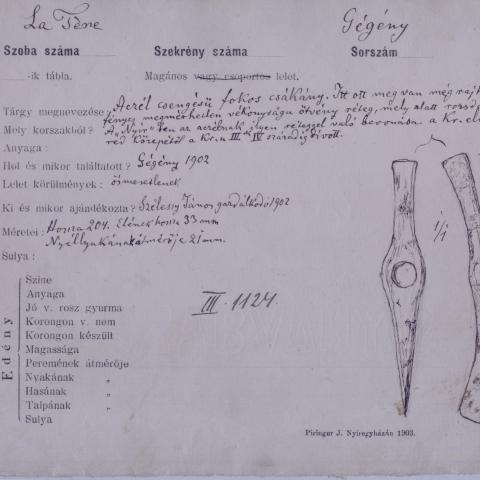 La Tène Gégény
Szoba száma Szekrény száma Sorszám
-ik tábla. Magános vagy csoportos lelet.
Tárgy megnevezése? Aczél csengésű fokos csákány. Itt ott meg van még rajt
fényes megmérhetlen vékonyságu ötvény réteg, mely alatt rozsd
Mely korszakból? A „Nyir"-ben az aczélnak ilyen réteggel való bevonása a Kr. el
közepétől a Kr. u III IV századig divott.
Anyaga :
Hol és mikor találtatott? Gégény 1902
Lelet körülmények : ösmeretlenek
Ki és mikor ajándékozta? Szélessy János gazdálkodó 1902
Méretei : Hossza 204. Élének hossza 33 mm
Nyéllyukának átmérője 21 mm.
Sulya :
Edény
Szine
Anyaga
Jó v. rosz gyurma
Korongon v. nem
Korongon készült
Magassága
Peremének átmérője
Nyakának „
Hasának „
Talpának „
Sulya
III. 1124.
1/1
Piringer J. Nyiregyházán 1903.